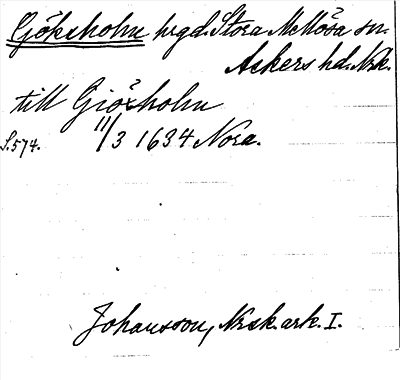 Göksholm hgd. Stora Mellösa sn.
Askers hd. Nrk.
till Giöxholm
S. 574. 11/3 1634 Nora.
Johansson, Nrsk. ark. I.